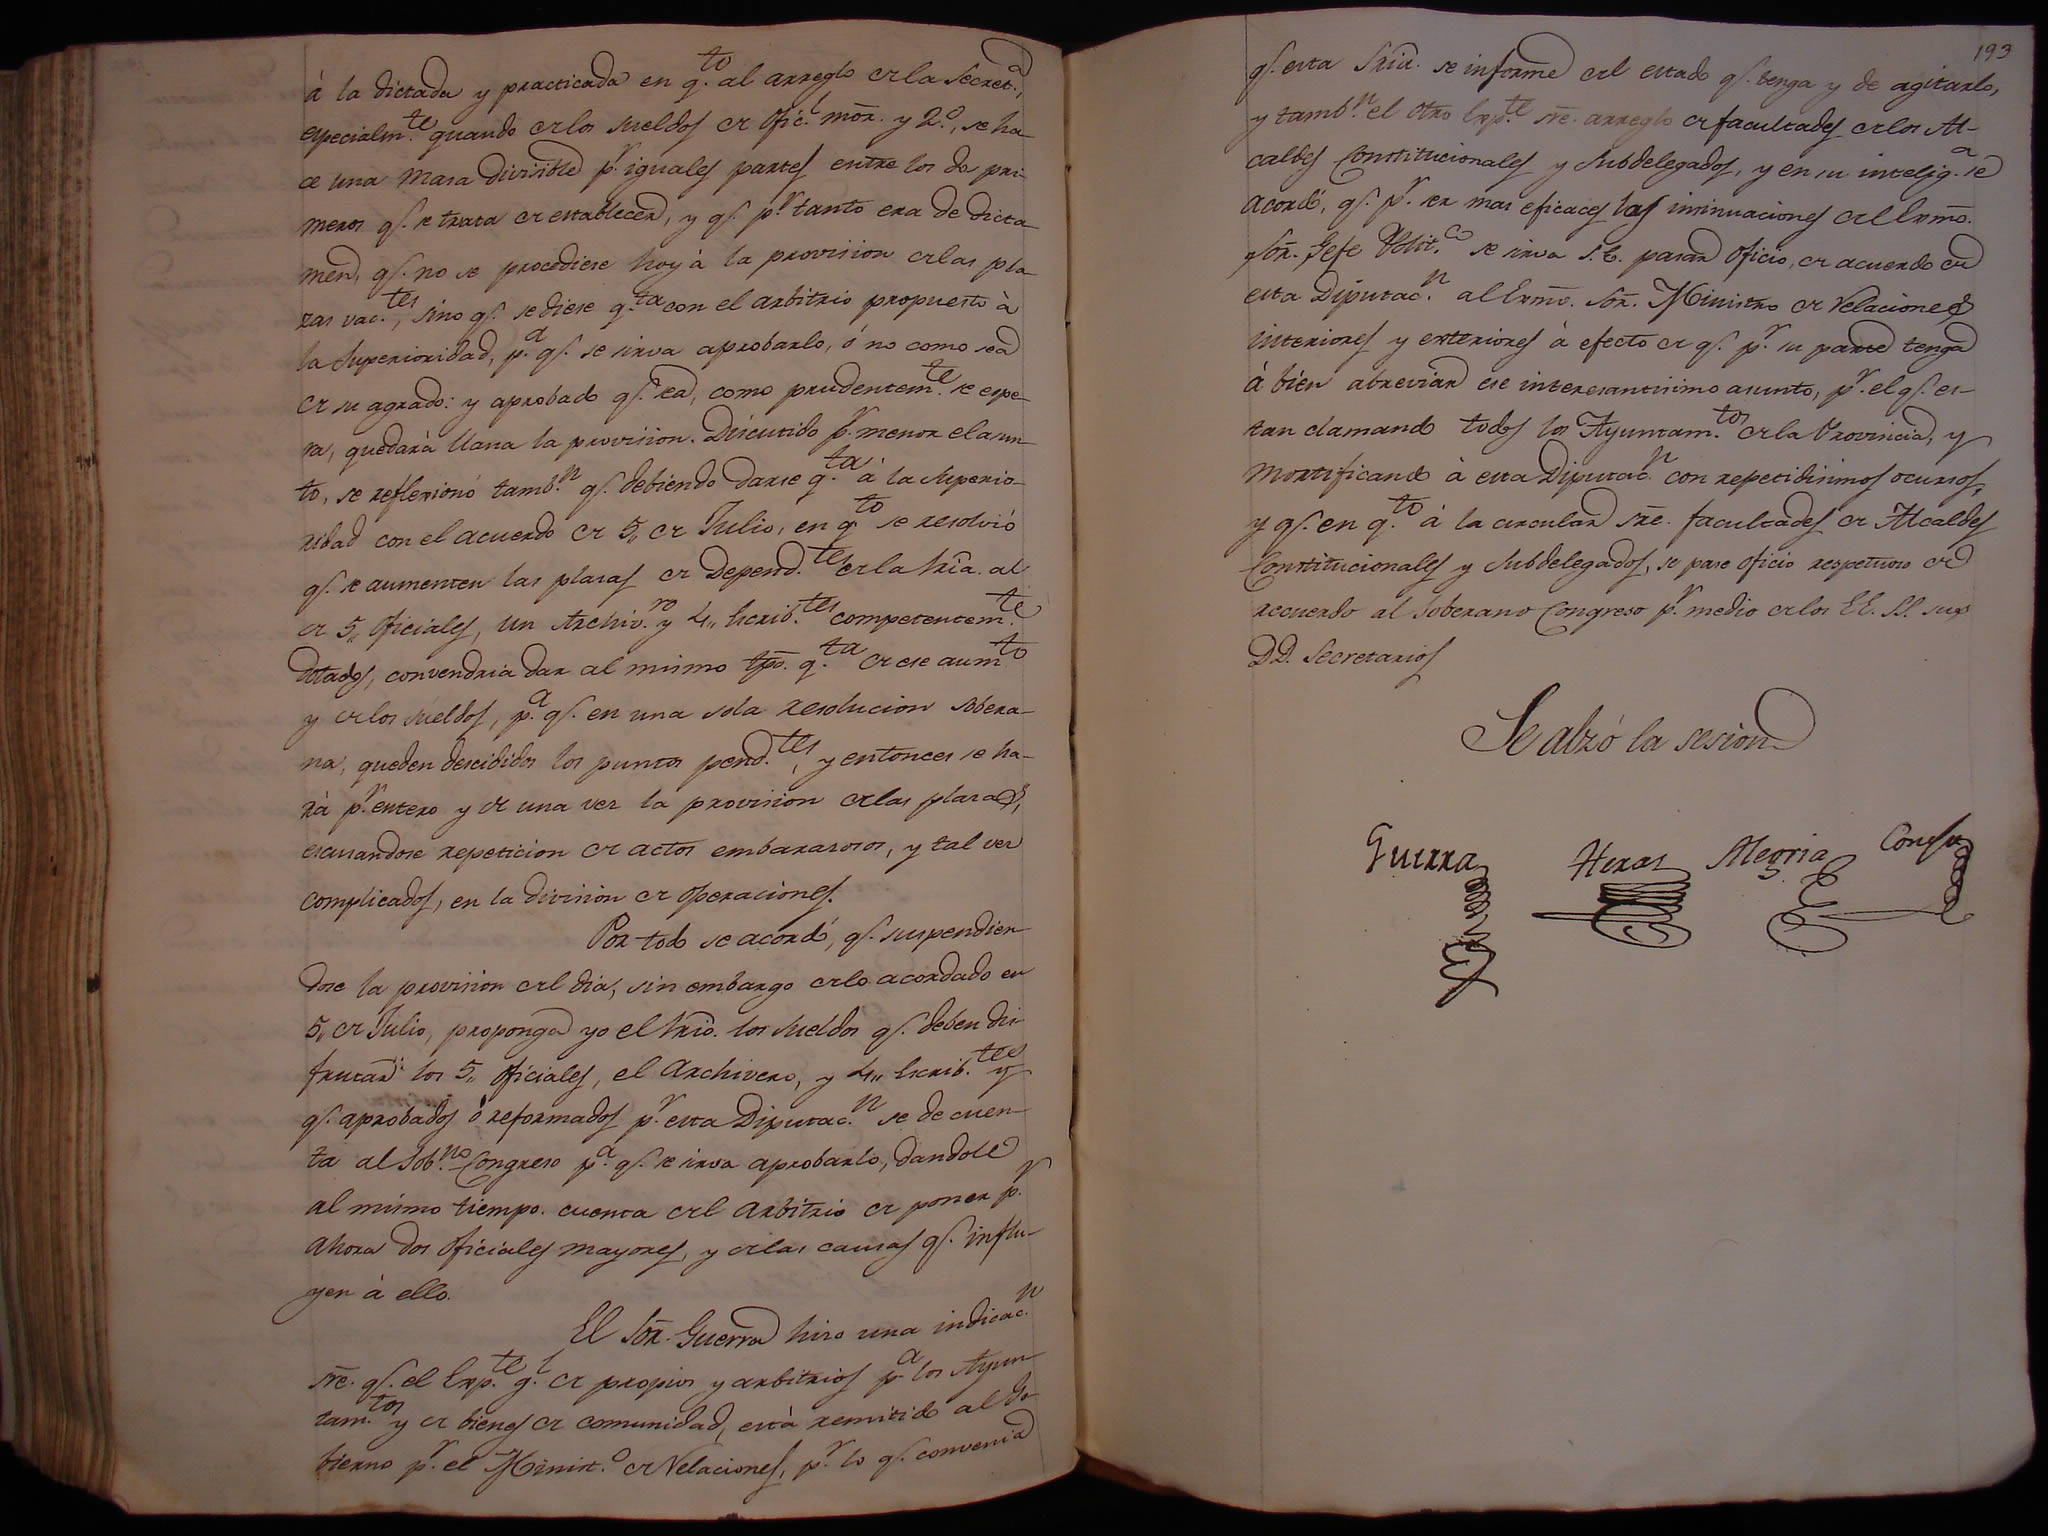 à la dictada y practicada en q.to al arreglo de la Secret.a,
especialm.te quando de los sueldos de Ofic.l mõr. y 2.o, se ha-
ce una masa divisible p.r iguales partes entre los dos pri-
meros q.e se trata de establecer, y q.e p.r tanto era de dicta-
men, q.e no se procediese hoy à la provision de las pla-
zas vac.tes, sino q.e se diese q.ta con el arbitrio propuesto à
la Superioridad, p.a q.e se sirva aprobarlo, ó no como sea
de su agrado: y aprobado q.e sea, como prudentem.te se espe-
ra, quedarà llana la provision. Discutido p.r menor el asun-
to, se reflexionó tamb.n q.e debiendo darse q.ta à la Superio-
ridad con el acuerdo de 5,, de Julio, en q.to se resolvió
q.e se aumenten las plasas de Depend.tes de la Sria. al
de 5,, Oficiales, un Archiv.ro y 4,, Escrib.tes competentem.te
dotados, convendria dar al mismo tpo. q.ta de ese aum.to
y de los sueldos, p.a q.e en una sola resolucion sobera-
na, queden descididos los puntos pend.tes, y entonces se ha-
rà p.r entero y de una ves la provision de las plasas,
escusandose repeticion de actos embarasosos, y tal ves
complicados, en la division de operaciones.
Por todo se acordó, q.e suspendien-
dose la provision del dia, sin embargo de lo acordado en
5,, de Julio, proponga yo el Srio. los sueldos q.e deben dis-
frutar los 5,, Oficiales, el Archivero, y 4,, Escrib.tes y
q.e aprobados ò reformados p.r esta Diputac.n se de cuen-
ta al Sob.no Congreso p.a q.e se sirva aprobarlo, dandole
al mismo tiempo cuenta del arbitrio de poner p.r
ahora dos Oficiales mayores, y de las causas q.e influ-
yen à ello.
El Sõr. Guerra hiso una indicac.n
sre. q.e el Exp.te g.l de propios y arbitrios p.a los Ayun-
tam.tos y de bienes de comunidad, està remitido al Go-
bierno p.r el Minist.o de Relaciones, p.r lo q.e convenia
193
q.e esta Sria. se informe del estado q.e tenga y de agitarlo,
y tamb.n el otro Exp.te sre. arreglo de facultades de los Al-
caldes Constitucionales y Subdelegados, y en su intelig.a se
acordó, q.e p.r ser mas eficaces las insinuaciones del Exmo.
Sõr. Gefe Polit.co se sirva S.E. pasar oficio, de acuerdo de
esta Diputac.n al Exmo. Sõr. Ministro de Relaciones
interiores y exteriores à efecto de q.e p.r su parte tenga
à bien abreviar ese interesantisimo asunto, p.r el q.e es-
tan clamando todos los Ayuntam.tos de la Provincia, y
mortificando à esta Diputac.n con repetidisimos ocursos,
y q.e en q.to à la circular sre. facultades de Alcaldes
Constitucionales y Subdelegados, se pase oficio respetuoso de
recuerdo al Soberano Congreso p.r medio de los EE. SS. sus
DD. Secretarios
Se alzó la sesion
Guerra Heras Alegria